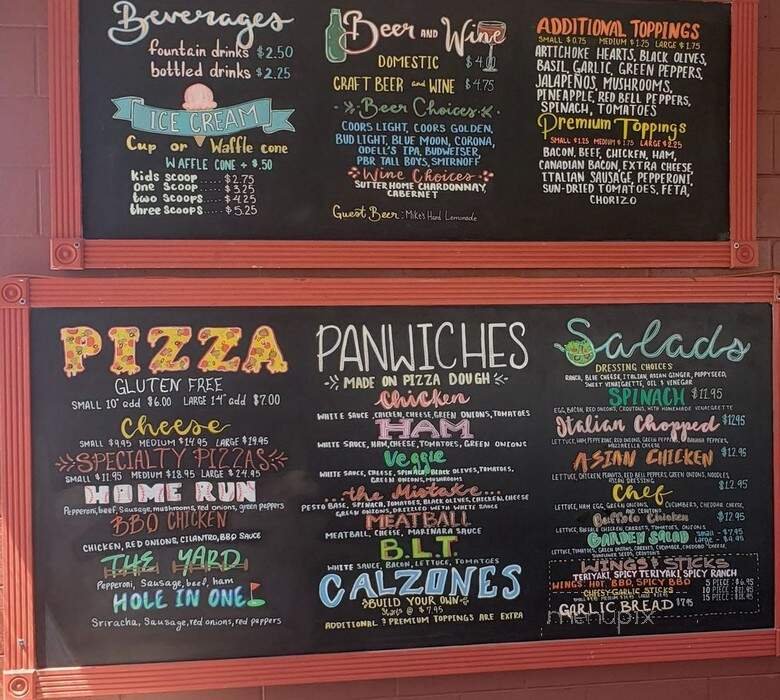 Beverages
fountain drinks $2.50
bottled drinks $2.25
ICE CREAM
Cup or Waffle cone
WAFFLE CONE + $.50
kids scoop ..... $2.75
one scoop ..... $3.25
two scoops .... $4.25
three scoops ..... $5.25
Beer AND Wine
DOMESTIC $4.00
CRAFT BEER and WINE $4.75
Beer Choices
COORS LIGHT, COORS GOLDEN,
BUD LIGHT, BLUE MOON, CORONA,
ODELL'S IPA, BUDWEISER
PBR TALL BOYS, SMIRNOFF
Wine Choices
SUTTER HOME CHARDONNAY,
CABERNET
Guest Beer: Mike's Hard Lemonade
ADDITIONAL TOPPINGS
SMALL $0.75 MEDIUM $1.25 LARGE $1.75
ARTICHOKE HEARTS, BLACK OLIVES,
BASIL, GARLIC, GREEN PEPPERS,
JALAPEÑOS, MUSHROOMS,
PINEAPPLE, RED BELL PEPPERS,
SPINACH, TOMATOES
Premium Toppings
SMALL $1.25 MEDIUM $1.75 LARGE $2.25
BACON, BEEF, CHICKEN, HAM,
CANADIAN BACON, EXTRA CHEESE,
ITALIAN SAUSAGE, PEPPERONI,
SUN-DRIED TOMATOES, FETA,
CHORIZO
PIZZA
GLUTEN FREE
SMALL 10" add $6.00 LARGE 14" add $7.00
Cheese
SMALL $9.95 MEDIUM $14.95 LARGE $19.95
SPECIALTY PIZZAS
SMALL $11.95 MEDIUM $18.95 LARGE $24.95
HOME RUN
Pepperoni, beef, Sausage, mushrooms, red onions, green peppers
BBQ CHICKEN
CHICKEN, RED ONIONS, CILANTRO, BBQ SAUCE
THE YARD
Pepperoni, Sausage, beef, ham
HOLE IN ONE
Sriracha, Sausage, red onions, red peppers
PANWICHES
MADE ON PIZZA DOUGH
Chicken
WHITE SAUCE, CHICKEN, CHEESE, GREEN ONIONS, TOMATOES
HAM
WHITE SAUCE, HAM, CHEESE, TOMATOES, GREEN ONIONS
Veggie
WHITE SAUCE, CHEESE, SPINACH, BLACK OLIVES, TOMATOES,
GREEN ONIONS, MUSHROOMS
...the Mistake...
PESTO BASE, SPINACH, TOMATOES, BLACK OLIVES, CHICKEN, CHEESE
GREEN ONIONS, DRESSED WITH WHITE SAUCE
MEATBALL
MEATBALL, CHEESE, MARINARA SAUCE
B.L.T.
WHITE SAUCE, BACON, LETTUCE, TOMATOES
CALZONES
BUILD YOUR OWN
Starts @ $7.95
ADDITIONAL & PREMIUM TOPPINGS ARE EXTRA
Salads
DRESSING CHOICES
RANCH, BLUE CHEESE, ITALIAN, ASIAN GINGER, POPPYSEED,
SWEET VINAIGRETTE, OIL & VINEGAR
SPINACH $11.95
EGG, BACON, RED ONIONS, CROUTONS, WITH HOMEMADE VINAIGRETTE
Italian Chopped $12.95
LETTUCE, HAM, PEPPERONI, RED ONIONS, GREEN PEPPERS, BANANA PEPPERS,
MOZZARELLA CHEESE
ASIAN CHICKEN $12.95
LETTUCE, CHICKEN, PEANUTS, RED BELL PEPPERS, GREEN ONIONS, NOODLES,
ASIAN DRESSING
Chef $12.95
LETTUCE, HAM, EGG, GREEN ONIONS, CUCUMBERS, CHEDDAR CHEESE,
AND CROUTONS
Buffalo Chicken $12.95
LETTUCE, BUFFALO CHICKEN, CARROTS, TOMATOES, ONIONS
GARDEN SALAD small - large - $9.95
LETTUCE, TOMATOES, GREEN ONIONS, CARROTS, CUCUMBER, CHEDDAR CHEESE,
SUNFLOWER SEEDS, CROUTONS
WINGS & STICKS
TERIYAKI, SPICY TERIYAKI, SPICY RANCH
WINGS: HOT, BBQ, SPICY BBQ
5 PIECE: $6.95
10 PIECE: $11.95
15 PIECE:
CHEESY GARLIC STICKS
GARLIC BREAD $7.95
menupix